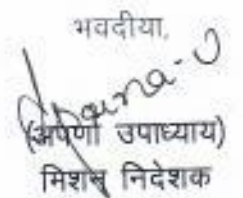 भवदीया,
Aparna-U
(अपर्णा उपाध्याय)
मिशन निदेशक